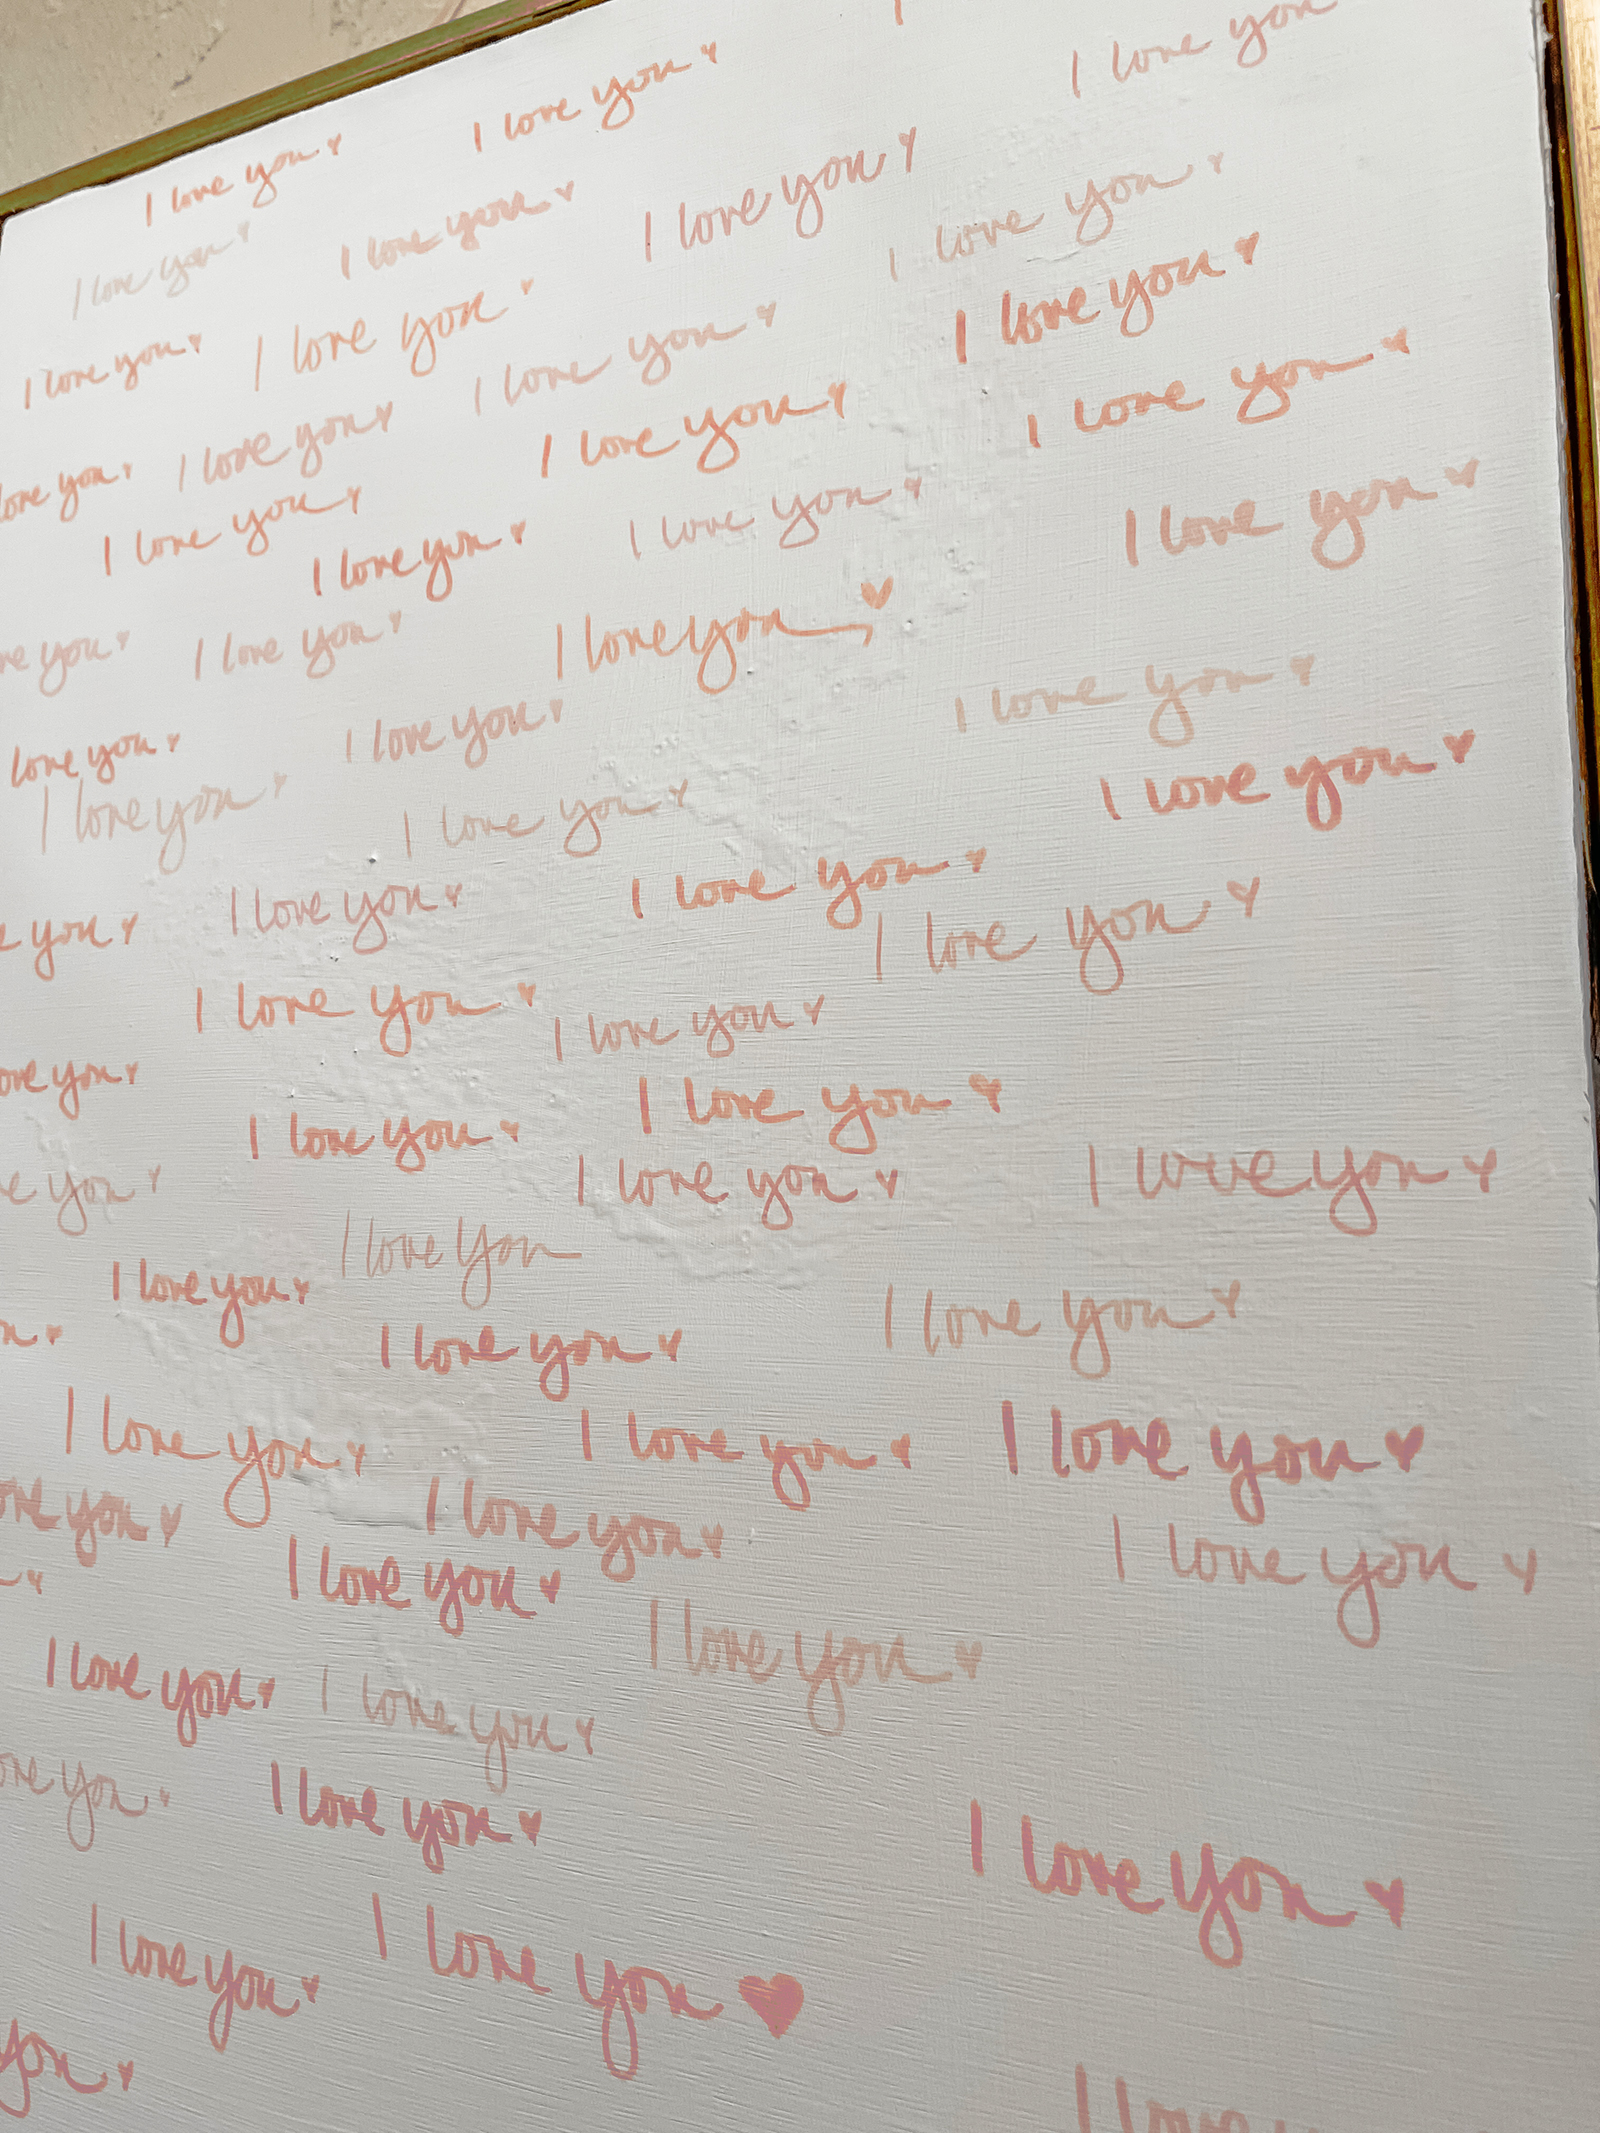 I love you
I love you
I love you
I love you
I love you
I love you
I love you
I love you
I love you
I love you
I love you
I love you
I love you
I love you
I love you
I love you
love you
I love you
I love you
I love you
I love you
I love you
I love you
you
I love you
I love you
love you
I love you
I love you
I love you
I love you
I love you
I love you
you
I love you
I love you
I love you
I love you
I love you
love you
I love you
I love you
I love you
you
I love you
I love you
I love you
I love you
I love you
I love you
I love you
I love you
you
I love you
I love you
I love you
I love you
I love you
I love you
I love you
you
I love you
I love you
I love you
I love you
you
I